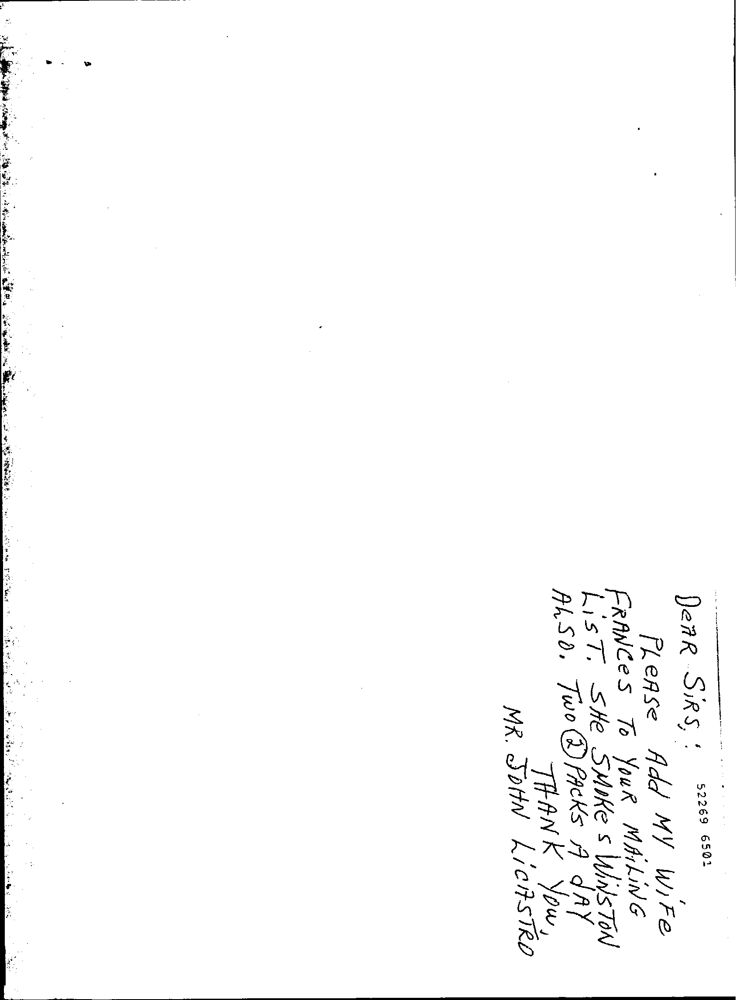 52269 6501
DEAR SIRS,:
PLEASE Add MY WIFE
FRANCES TO YOUR MAILING
LIST. SHE SMOKES WINSTON
ALSO. TWO (2) PACKS A dAY
THANK YOU,
MR. JOHN LICASTRO